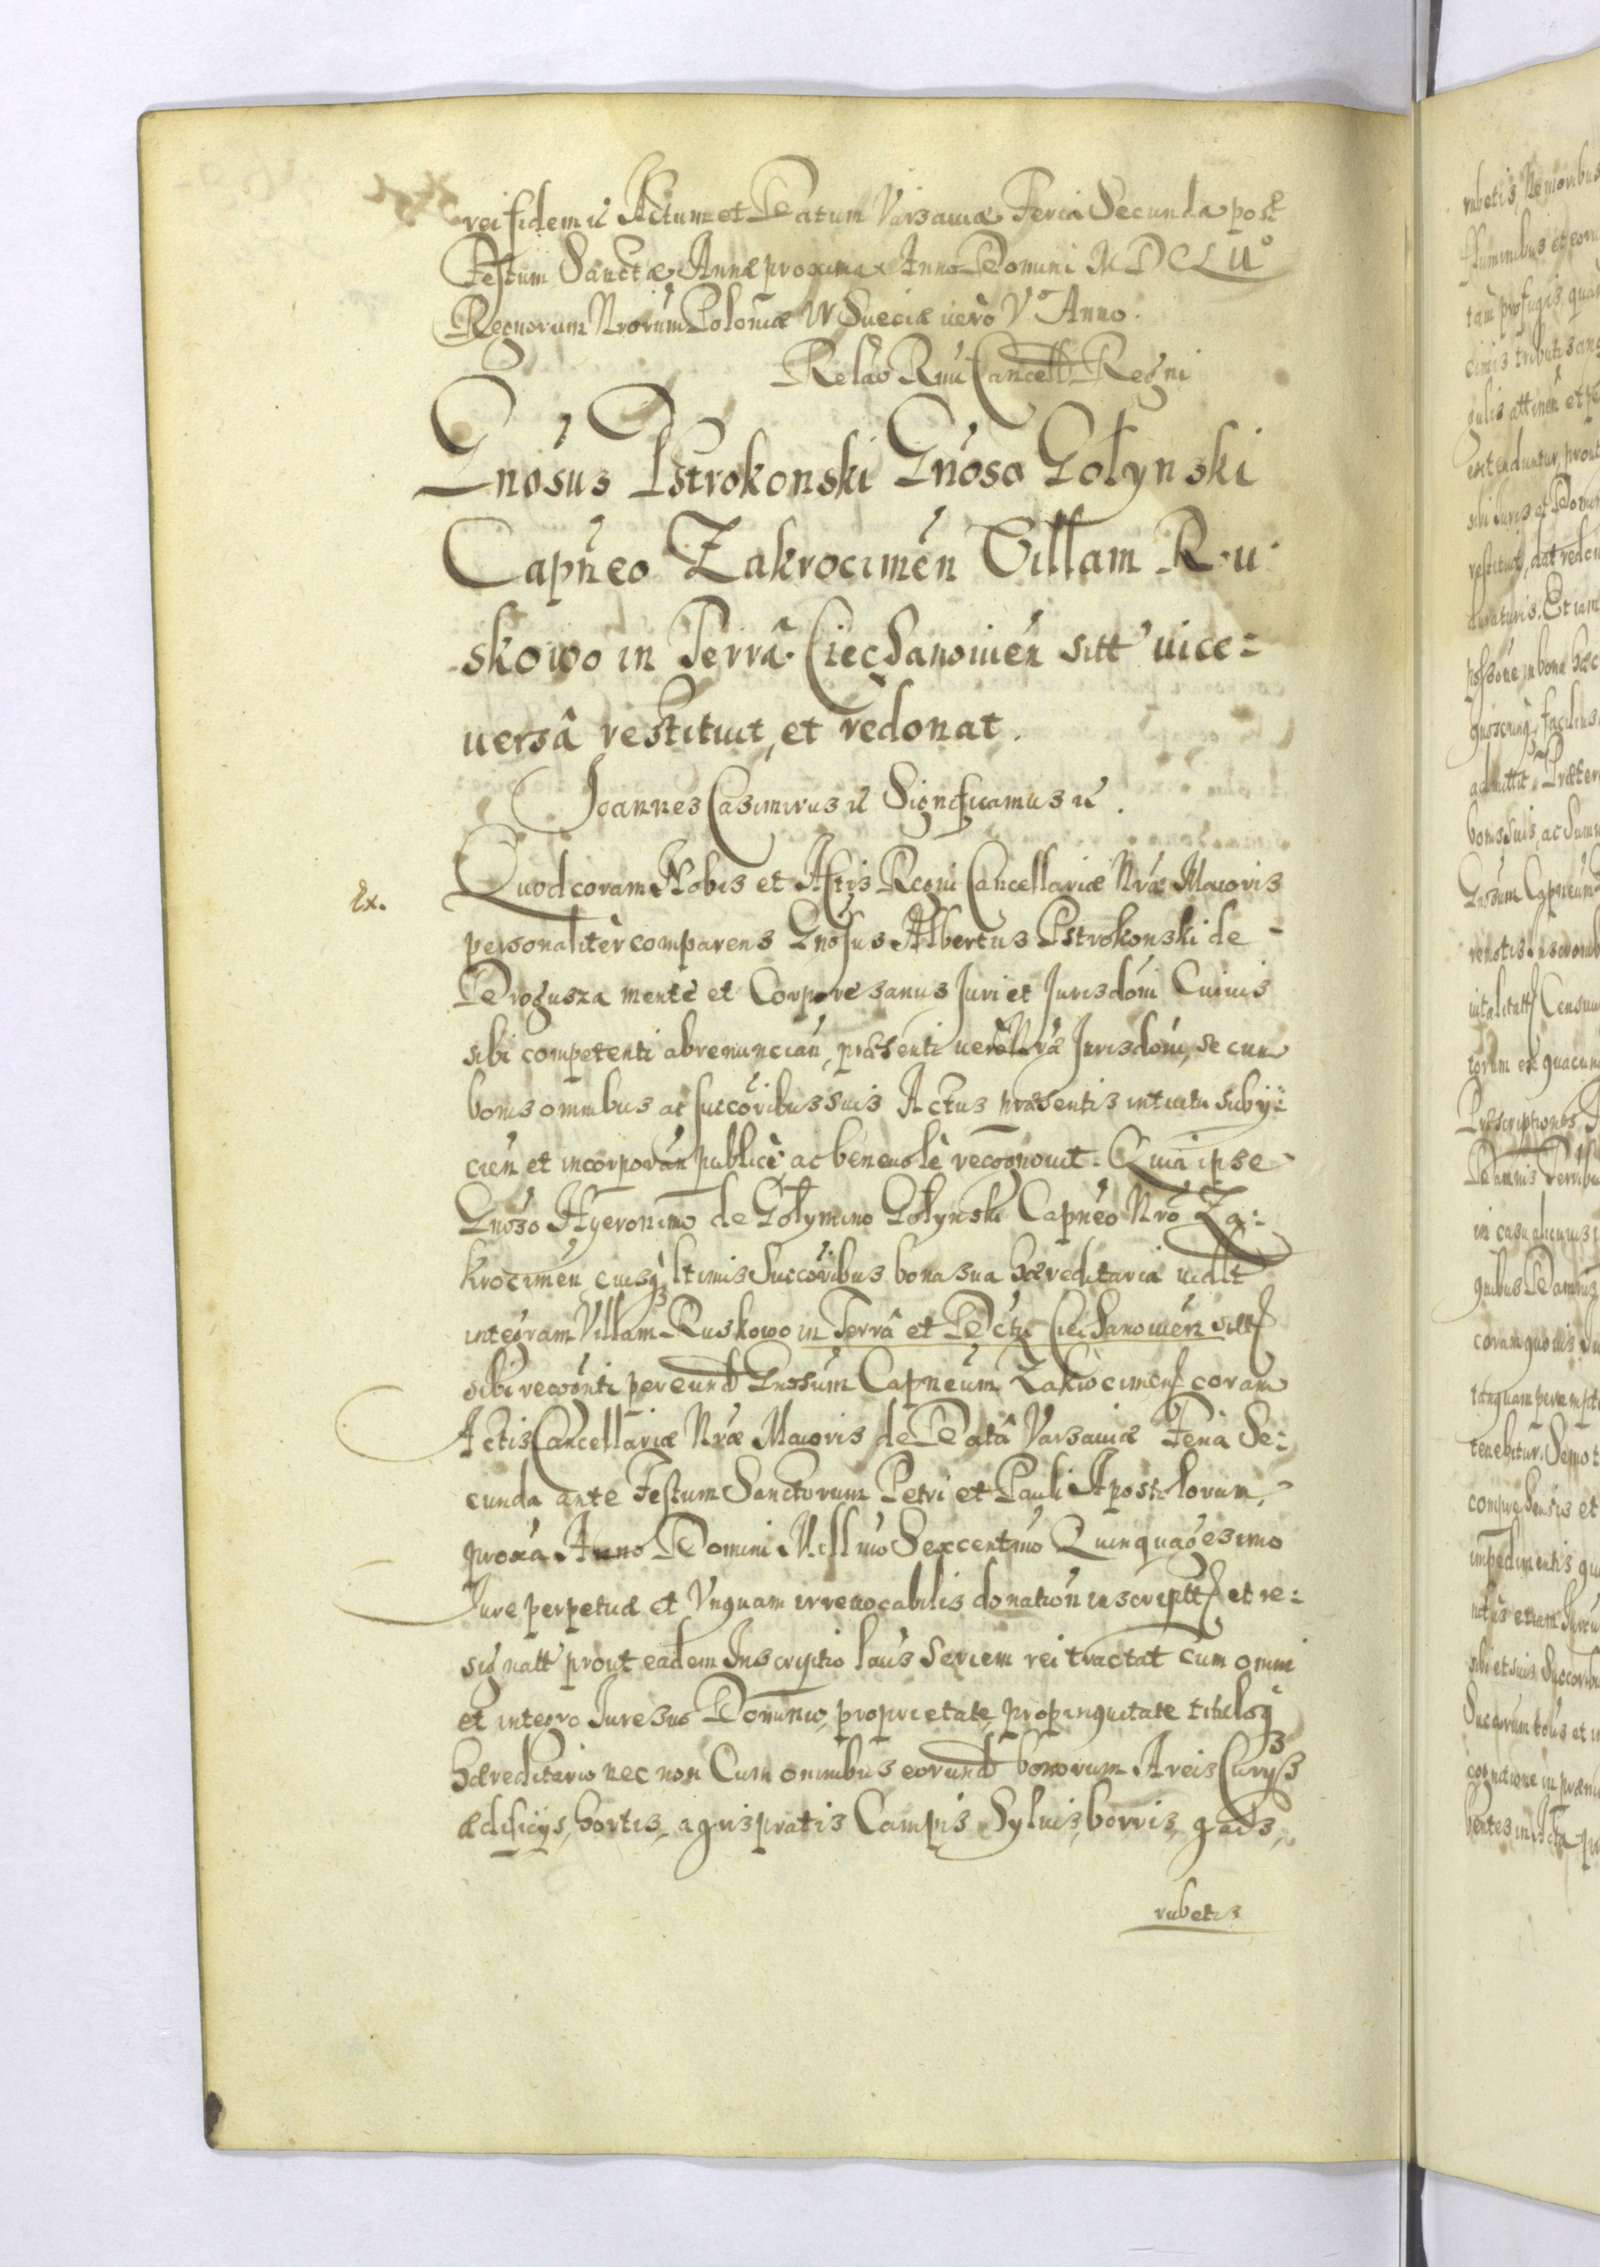 rei fidem etc Actum et Datum Varsauiae Feria Secunda post
Festum Sanctae Annae proxima Anno Domini MDCLII°
Regnorum Nrorum Poloniae IV Sueciae uerò V° Anno.
Relao Rmi Cancell Regni
Gnosus Pstrokonski Gnoso Gołynski
Capneo Zakrocimen Villam Ru
skowo in Terrâ Ciechanouien sitt uice=
uersâ restituit, et redonat.
Joannes Casimirus etc Significamus etc.
Ex.
Quod coram Nobis et Actis Regni Cancellariae Nrae Maioris
personalitèr comparens Gnosus Albertus Pstrokonski de
Drogusza mente et Corpore sanus Juri et Jurisdoni Cuiuis
sibi competenti abrenuncian, praesenti uerò Nrae Jurisdoni, se cum
bonis omnibus ac succoribus suis Actus praesentis intuitu subij=
cien et incorporan publicè ac beneuolè recognouit. Quia ipse
Gnoso Hyeronimo de Gołymino Gołynski Capneo Nro Za=
krocimen, eiusq3 ltimis Succoribus bona sua haereditaria uidlt
integram Villam Ruskowo in Terrâ et Dctu Ciechanouien sitt
sibi recognti per eund Gnosum Capneum Zakrocimen coram
Actis Cancellariae Nrae Maioris de Datâ Varsauiae Feria Se=
cunda ante Festum Sanctorum Petri et Pauli Apostolorum,
proxa Anno Domini Millmo Sexcentmo Quinquagesimo
Jure perpetuae et Vnquam irreuocabilis donation inscriptt et re=
signatt prout eadem Inscriptio latius Seriem rei tractat cum omni
et integro Jure suo Dominio, proprietate, propinquitate tituloq3
haereditario nec non Cum omnibus eorund bonorum Areis Curijs
aedificijs, hortis, agris pratis Campis Syluis, borris, gads,
rubetis